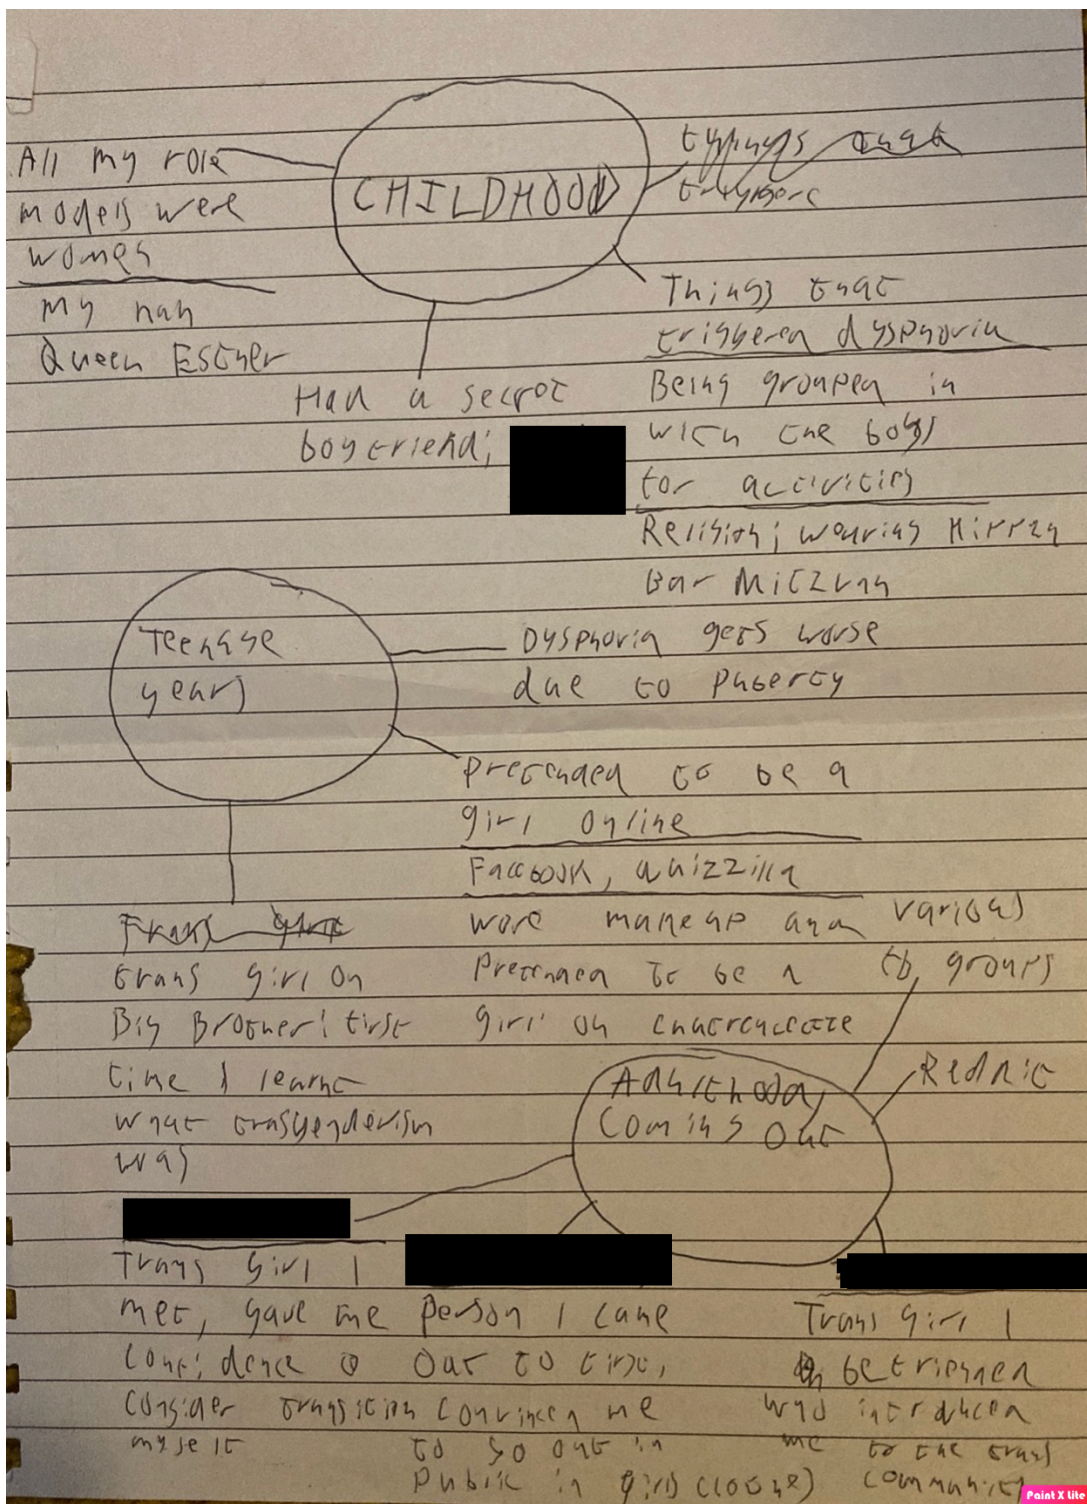 CHILDHOOD
All my role
models were
women
My nan
Queen Esther
Had a secret
boyfriend;
Things that
triggered dysphoria
Being grouped in
with the boys
for activities
Religion; wearing Kippah
Bar Mitzvah
Teenage
years
Dysphoria gets worse
due to puberty
Pretended to be a
girl online
Facebook, quizzilla
wore makeup and
Pretended to be a
girl on chatroulette
Trans girl
trans girl on
Big Brother; first
time I learnt
what transgenderism
was
Adulthood,
Coming out
various
fb groups
Reddit
Trans girl I
met, gave me
confidence to
consider transition
myself
Person I came
out to first,
convinced me
to go out in
public in girls clothes
Trans girl I
befriended
who introduced
me to the trans
community
Paint X Lite